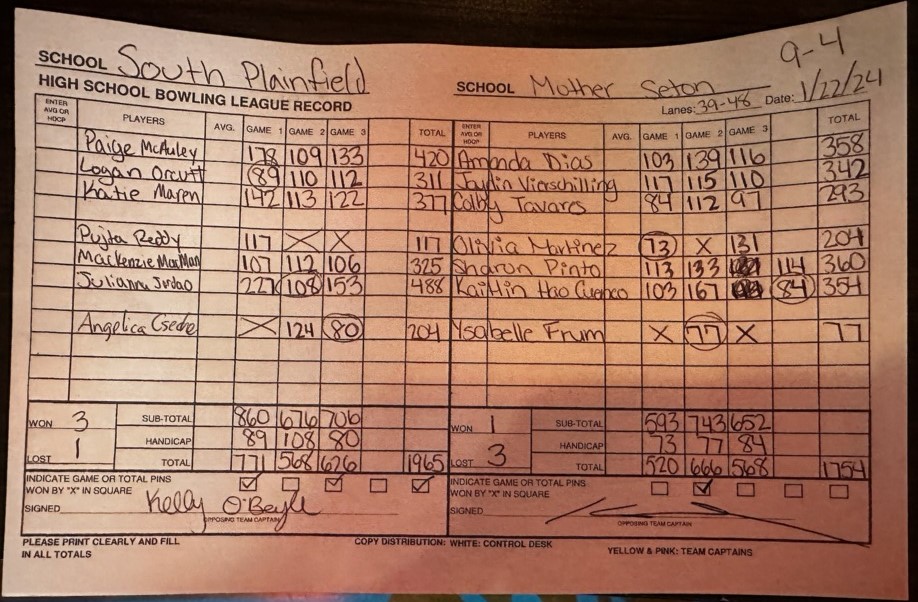 9-4
SCHOOL South Plainfield SCHOOL Mother Seton
HIGH SCHOOL BOWLING LEAGUE RECORD Lanes: 39-48 Date: 1/22/24
ENTER AVG OR HDCP PLAYERS AVG. GAME 1 GAME 2 GAME 3 TOTAL ENTER AVG OR HDCP PLAYERS AVG. GAME 1 GAME 2 GAME 3 TOTAL
Paige McAuley 178 109 133 420 Amanda Dias 103 139 116 358
Logan Orcutt 89 110 112 311 Jaylin Vierschilling 117 115 110 342
Katie Maren 142 113 122 377 Colby Tavares 84 112 97 293
Pujta Reddy 117 X X 117 Olivia Martinez 73 X 131 204
Mackenzie MacMan 107 112 106 325 Sharon Pinto 113 133 114 360
Julianna Jordao 227 108 153 488 Kaitlin Hao Cuenco 103 167 84 354
Angelica Csedre X 124 80 204 Ysabelle Frum X 77 X 77
WON 3 SUB-TOTAL 860 676 706 WON 1 SUB-TOTAL 593 743 652
HANDICAP 89 108 80 HANDICAP 73 77 84
LOST 1 TOTAL 771 568 626 1965 LOST 3 TOTAL 520 666 568 1754
INDICATE GAME OR TOTAL PINS INDICATE GAME OR TOTAL PINS
WON BY "X" IN SQUARE WON BY "X" IN SQUARE
SIGNED Kelly O'Beyle SIGNED
OPPOSING TEAM CAPTAIN OPPOSING TEAM CAPTAIN
PLEASE PRINT CLEARLY AND FILL COPY DISTRIBUTION: WHITE: CONTROL DESK YELLOW & PINK: TEAM CAPTAINS
IN ALL TOTALS